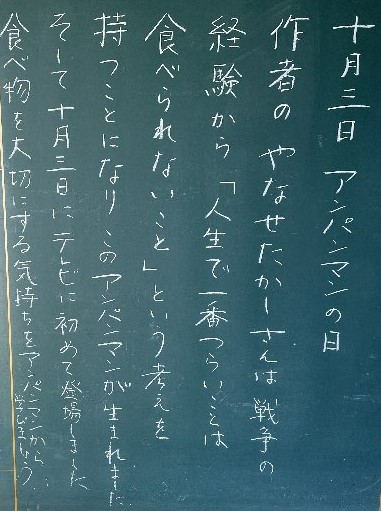 十月三日 アンパンマンの日
作者の やなせたかしさんは 戦争の
経験から 「人生で一番つらいことは
食べられないこと」という考えを
持つことになり このアンパンマンが生まれました
そして十月三日にテレビに初めて登場しました
食べ物を大切にする気持ちをアンパンマンから
学びましょう